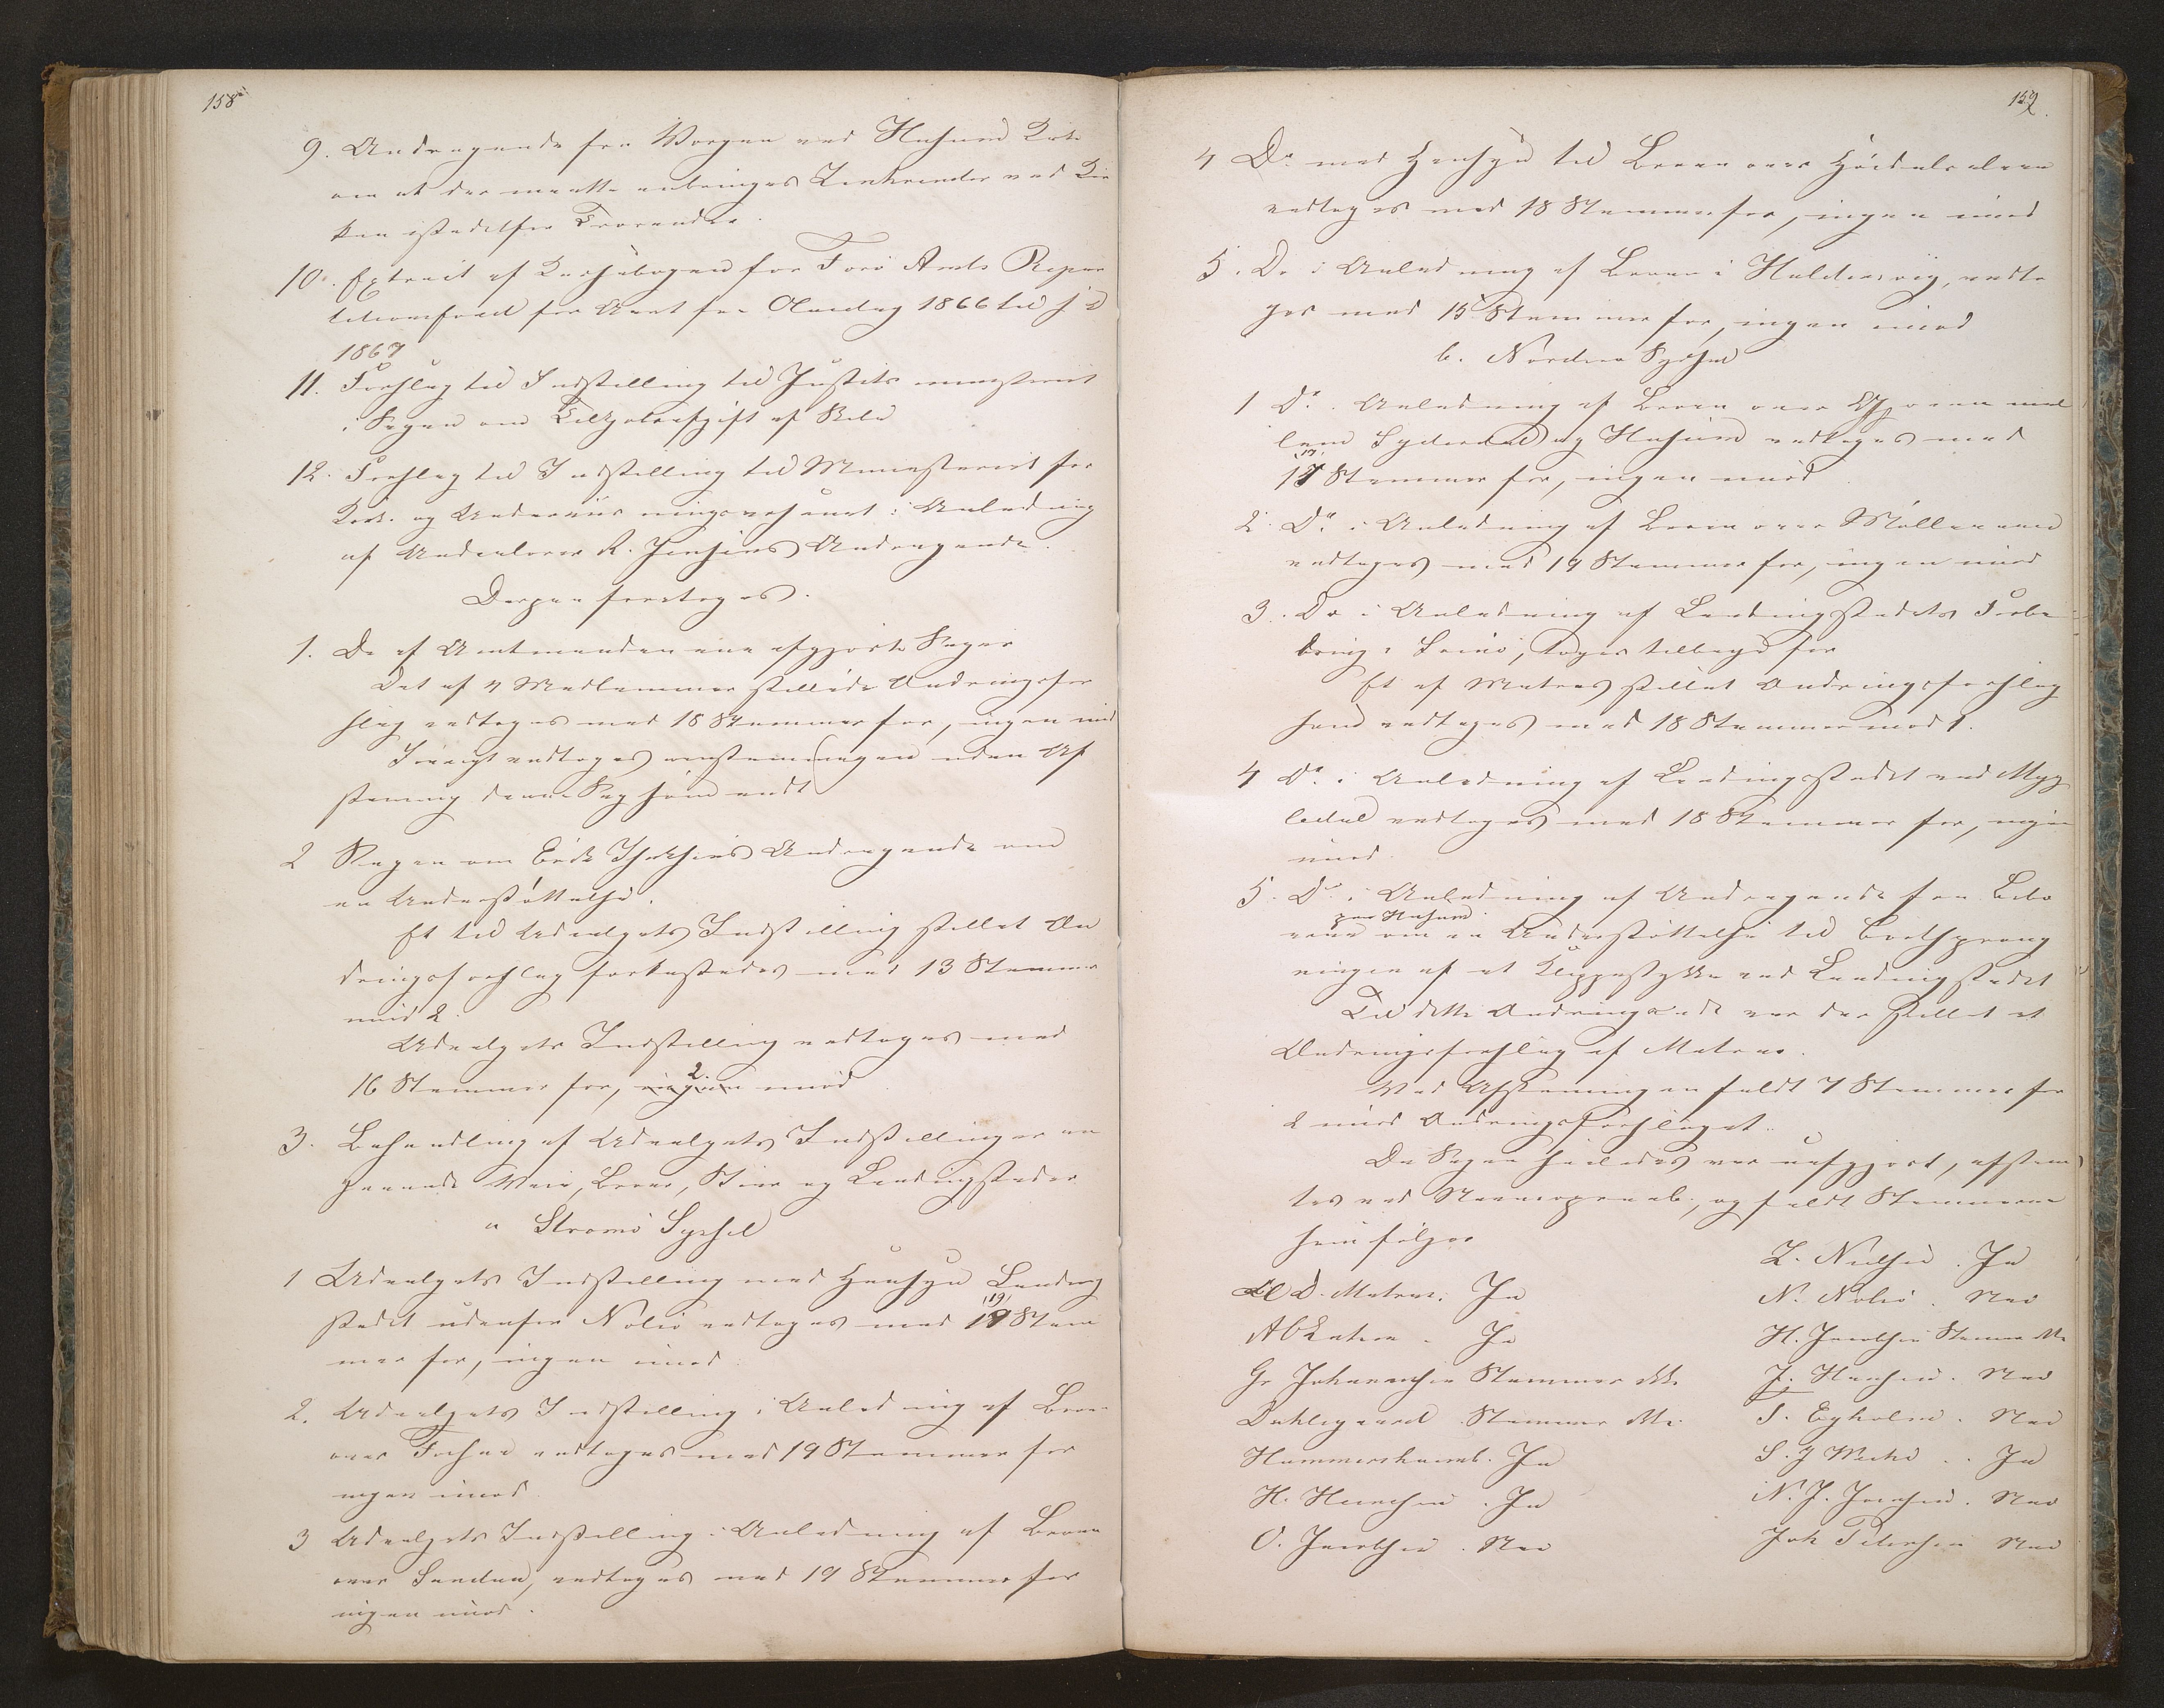 158
9. Andragende fra Værgen ved Husum Kirke
om at der maatte anbringes Zinkrender ved Kir
ken istedetfor Trærender.
10. Extract af Cassabogen for Færø Amts Repar
titionsfond for Aaret fra Olaidag 1866 til
1867
11. Forslag til Indstilling til Justitsministeriet
i Sagen om Afgift af
12. Forslag til Indstilling til Ministeriet for
Kirke og Underviisningsvæsenet i Anledning
af R. Jensens Andragende.
Derpaa foretoges.
1. De af Amtmanden ene afgjorte Sager
Det af 4 Medlemmer stillede Ændringsfor
slag vedtoges med 18 Stemmer for, ingen imod
Iøvrigt vedtoges uden Af
stemning denne Sag
2 Sagen om Andragende om
en Understøttelse.
Et til Udvalgets Indstilling stillet Æn
dringsforslag forkastedes med 13 Stemmer
imod 2.
Udvalgets Indstilling vedtoges med
16 Stemmer for, ingen 2. imod
3. Behandling af Udvalgets Indstillinger an
gaaende Veie, Broer, Stier og Landingsteder
a Strømø Syssel
1 Udvalgets Indstilling med Hensyn Landing
stedet udenfor Nolsø vedtoges med 19 Stem
mer for, ingen imod.
2. Udvalgets Indstilling i Anledning af Broen
over vedtoges med 19 Stemmer for
ingen imod.
3 Udvalgets Indstilling i Anledning af Broen
over Sanden, vedtoges med 19 Stemmer for
ingen imod.
159.
4 Do med Hensyn til Broen over
vedtoges med 18 Stemmer for, ingen imod
5. Do i Anledning af Broen i Haldersvig, vedto
ges med 15 Stemmer for, ingen imod
b. Norderø Syssel
1 Do i Anledning af Broen over mel
lem Syderdal og Husum vedtoges med
17 Stemmer for, ingen imod.
2. Do i Anledning af Broen over Mølleaaen
vedtoges med 19 Stemmer for, ingen imod
3. Do i Anledning af Landingstedets Forbe
dring i Svinø, toges tilbage for
Et af Matras stillet Ændringsforslag
som vedtoges med 18 Stemmer mod 1.
4 Do i Anledning af Landingstedet ved Myg
ledal vedtoges med 18 Stemmer for, ingen
imod.
5. Do i Anledning af Andragende fra Bebo
paa Husum
erne om en Understøttelse til Bortspræng
ningen af et Klippestykke ved Landingstedet
Til dette Andragende var der stillet et
Ændringsforslag af Matras.
Ved Afstemningen faldt 7 Stemmer for
2 imod Ændringsforslaget.
Da Sagen saaledes var uafgjort, afstem
tes ved Navneopraab, og faldt Stemmerne
som følger
D. Matras. Ja
Ja
Gr Johannesen Stemmer ikke
Dahlsgaard Stemmer ikke
Hammershaimb. Ja
H. Heinesen. Ja
O. Jacobsen. Nei
Z. Nielsen. Ja
N. Nolsø. Nei
H. Jacobsen Stemmer ikke
J. Hansen. Nei
S. Egholm. Nei
S. J Weihe.. Ja
N. J. Joensen. Nei
Joh Petersen Nei